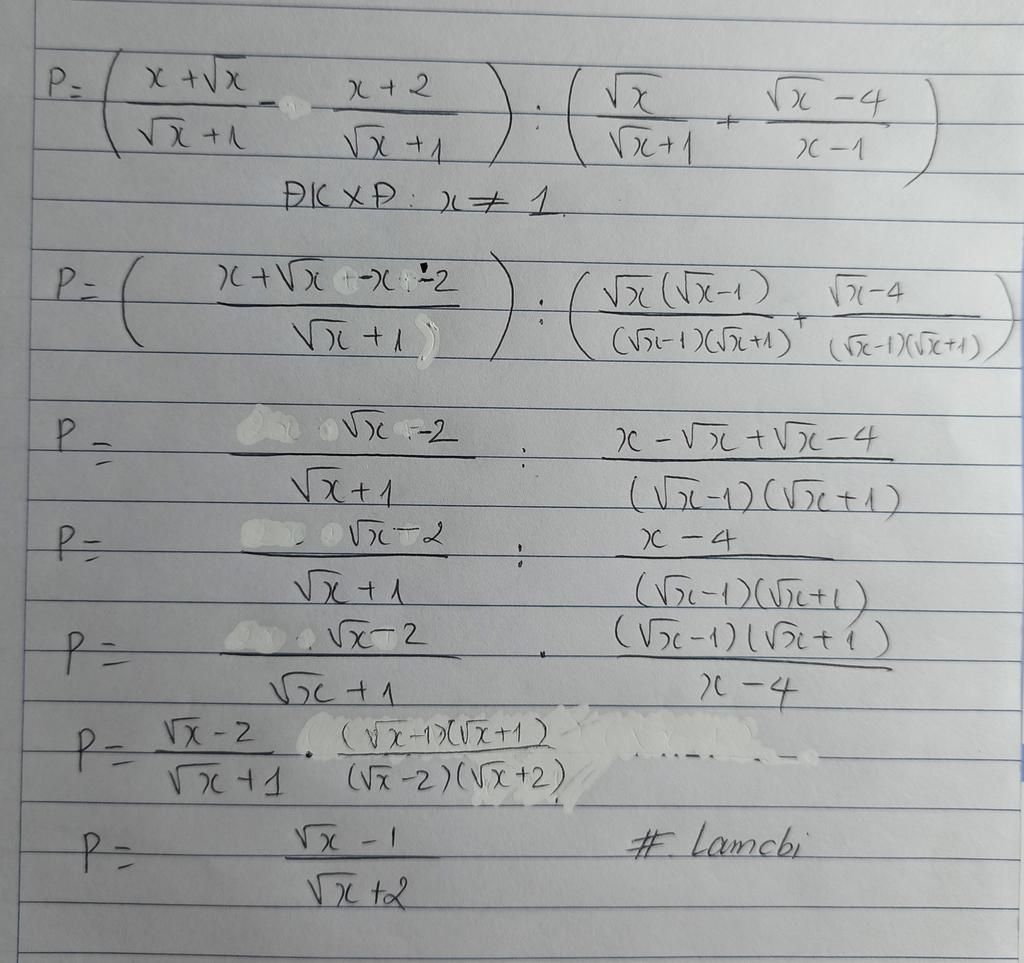 P = ( (x + √x)/(√x + 1) - (x + 2)/(√x + 1) ) : ( √x/(√x + 1) + (√x - 4)/(x - 1) )
ĐKXĐ : x ≠ 1
P = ( (x + √x - x - 2)/(√x + 1) ) : ( √x(√x - 1)/((√x - 1)(√x + 1)) + (√x - 4)/((√x - 1)(√x + 1)) )
P = (√x - 2)/(√x + 1) : (x - √x + √x - 4)/((√x - 1)(√x + 1))
P = (√x - 2)/(√x + 1) : (x - 4)/((√x - 1)(√x + 1))
P = (√x - 2)/(√x + 1) . ((√x - 1)(√x + 1))/(x - 4)
P = (√x - 2)/(√x + 1) . ((√x - 1)(√x + 1))/((√x - 2)(√x + 2)) .......
P = (√x - 1)/(√x + 2) #. Lamcbi